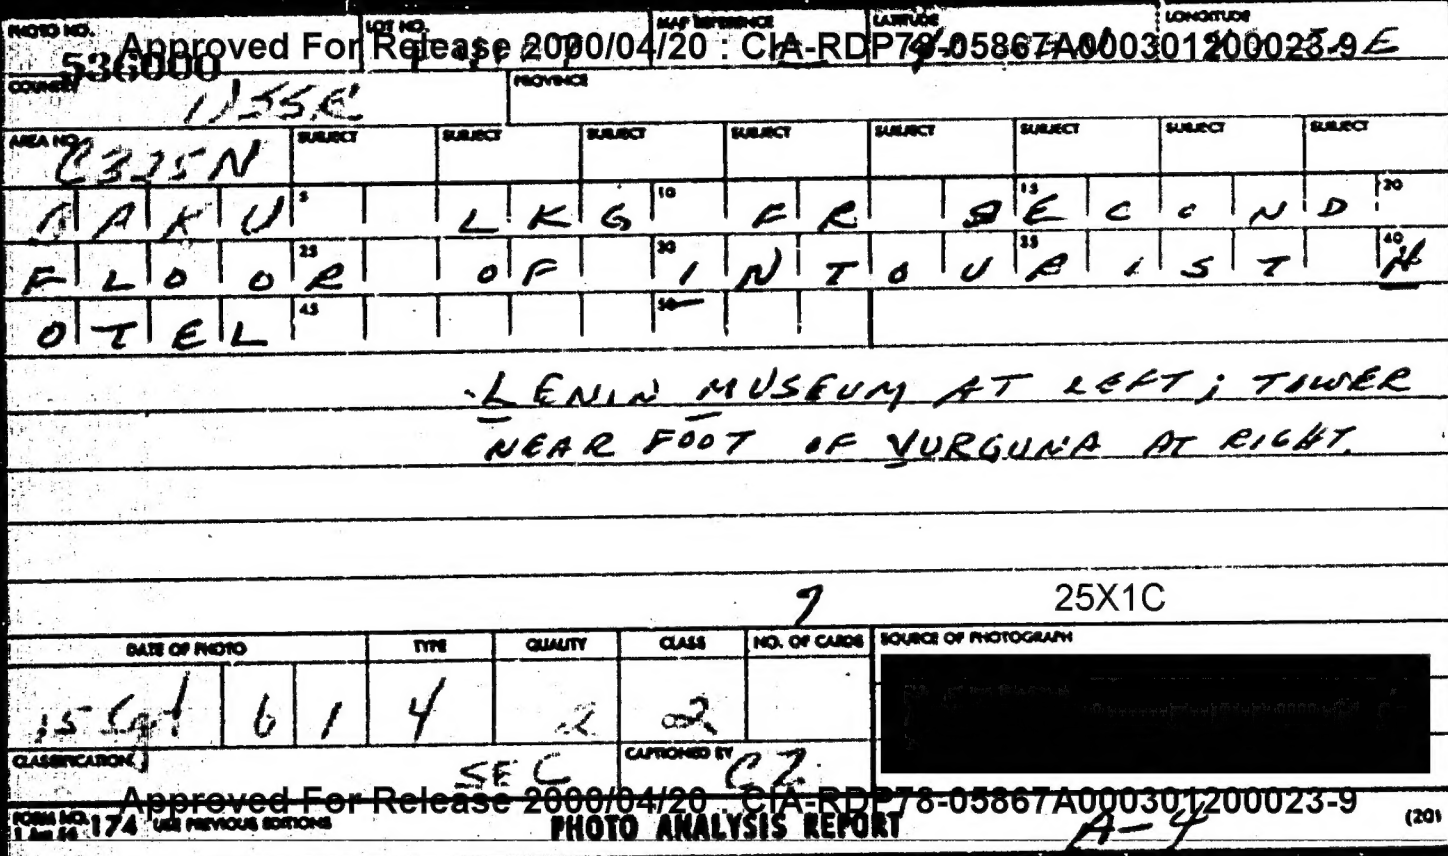 PHOTO NO. LOT NO. MAP REFERENCE LATITUDE LONGITUDE
Approved For Release 2000/04/20 : CIA-RDP78-05867A000301200023-9 E
536000
COUNTRY USSR PROVINCE
AREA NO. SUBJECT SUBJECT SUBJECT SUBJECT SUBJECT SUBJECT SUBJECT SUBJECT
C325N
5 10 15 20
BAKU LKG FR SECOND
25 30 35 40
FLOOR OF INTOURIST H
45 50
OTEL
LENIN MUSEUM AT LEFT; TOWER
NEAR FOOT OF VURGUNA AT RIGHT.
25X1C
DATE OF PHOTO TYPE QUALITY CLASS NO. OF CARDS SOURCE OF PHOTOGRAPH
15 Sept 6 1 4 2 2
CLASSIFICATION SEC CAPTIONED BY CZ
Approved For Release 2000/04/20 : CIA-RDP78-05867A000301200023-9
FORM NO. 174 USE PREVIOUS EDITIONS PHOTO ANALYSIS REPORT A-4 (20)